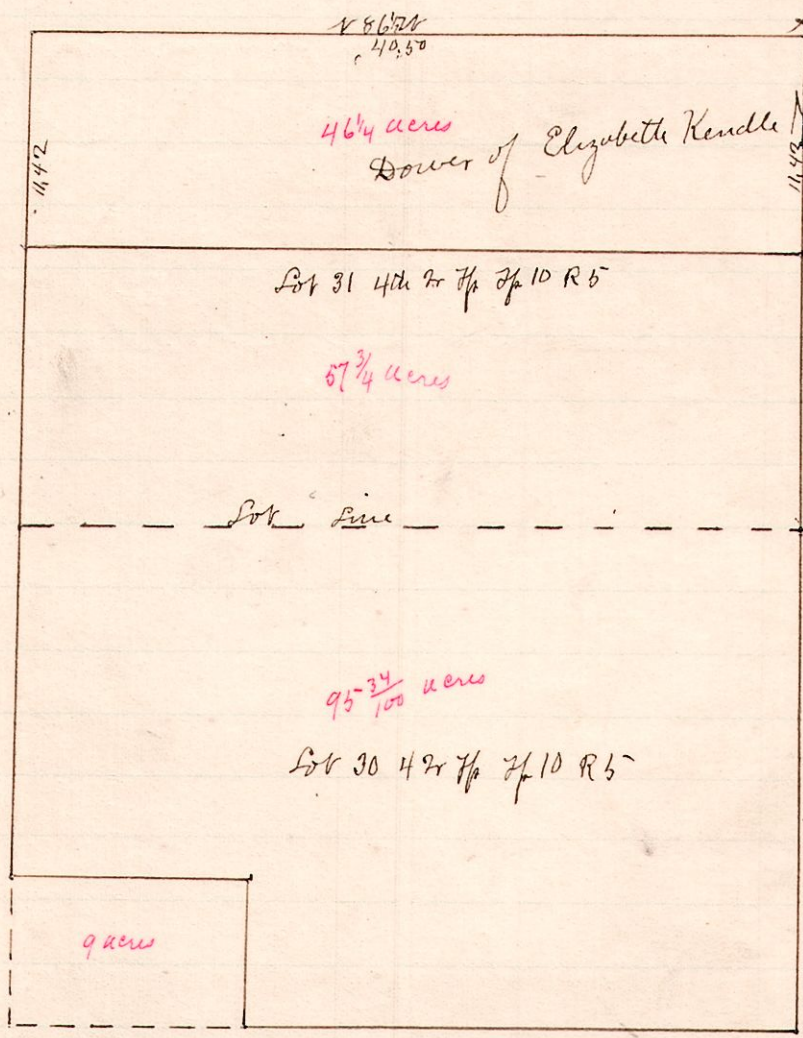 N 86½ W
40,50
46¼ acres
Dower of Elizabeth Kendle
11,42
11,42
Lot 31 4th Qr Tp Tp 10 R 5
57¾ acres
Lot Line
95 34/100 acres
Lot 30 4 Qr Tp Tp 10 R 5
9 acres